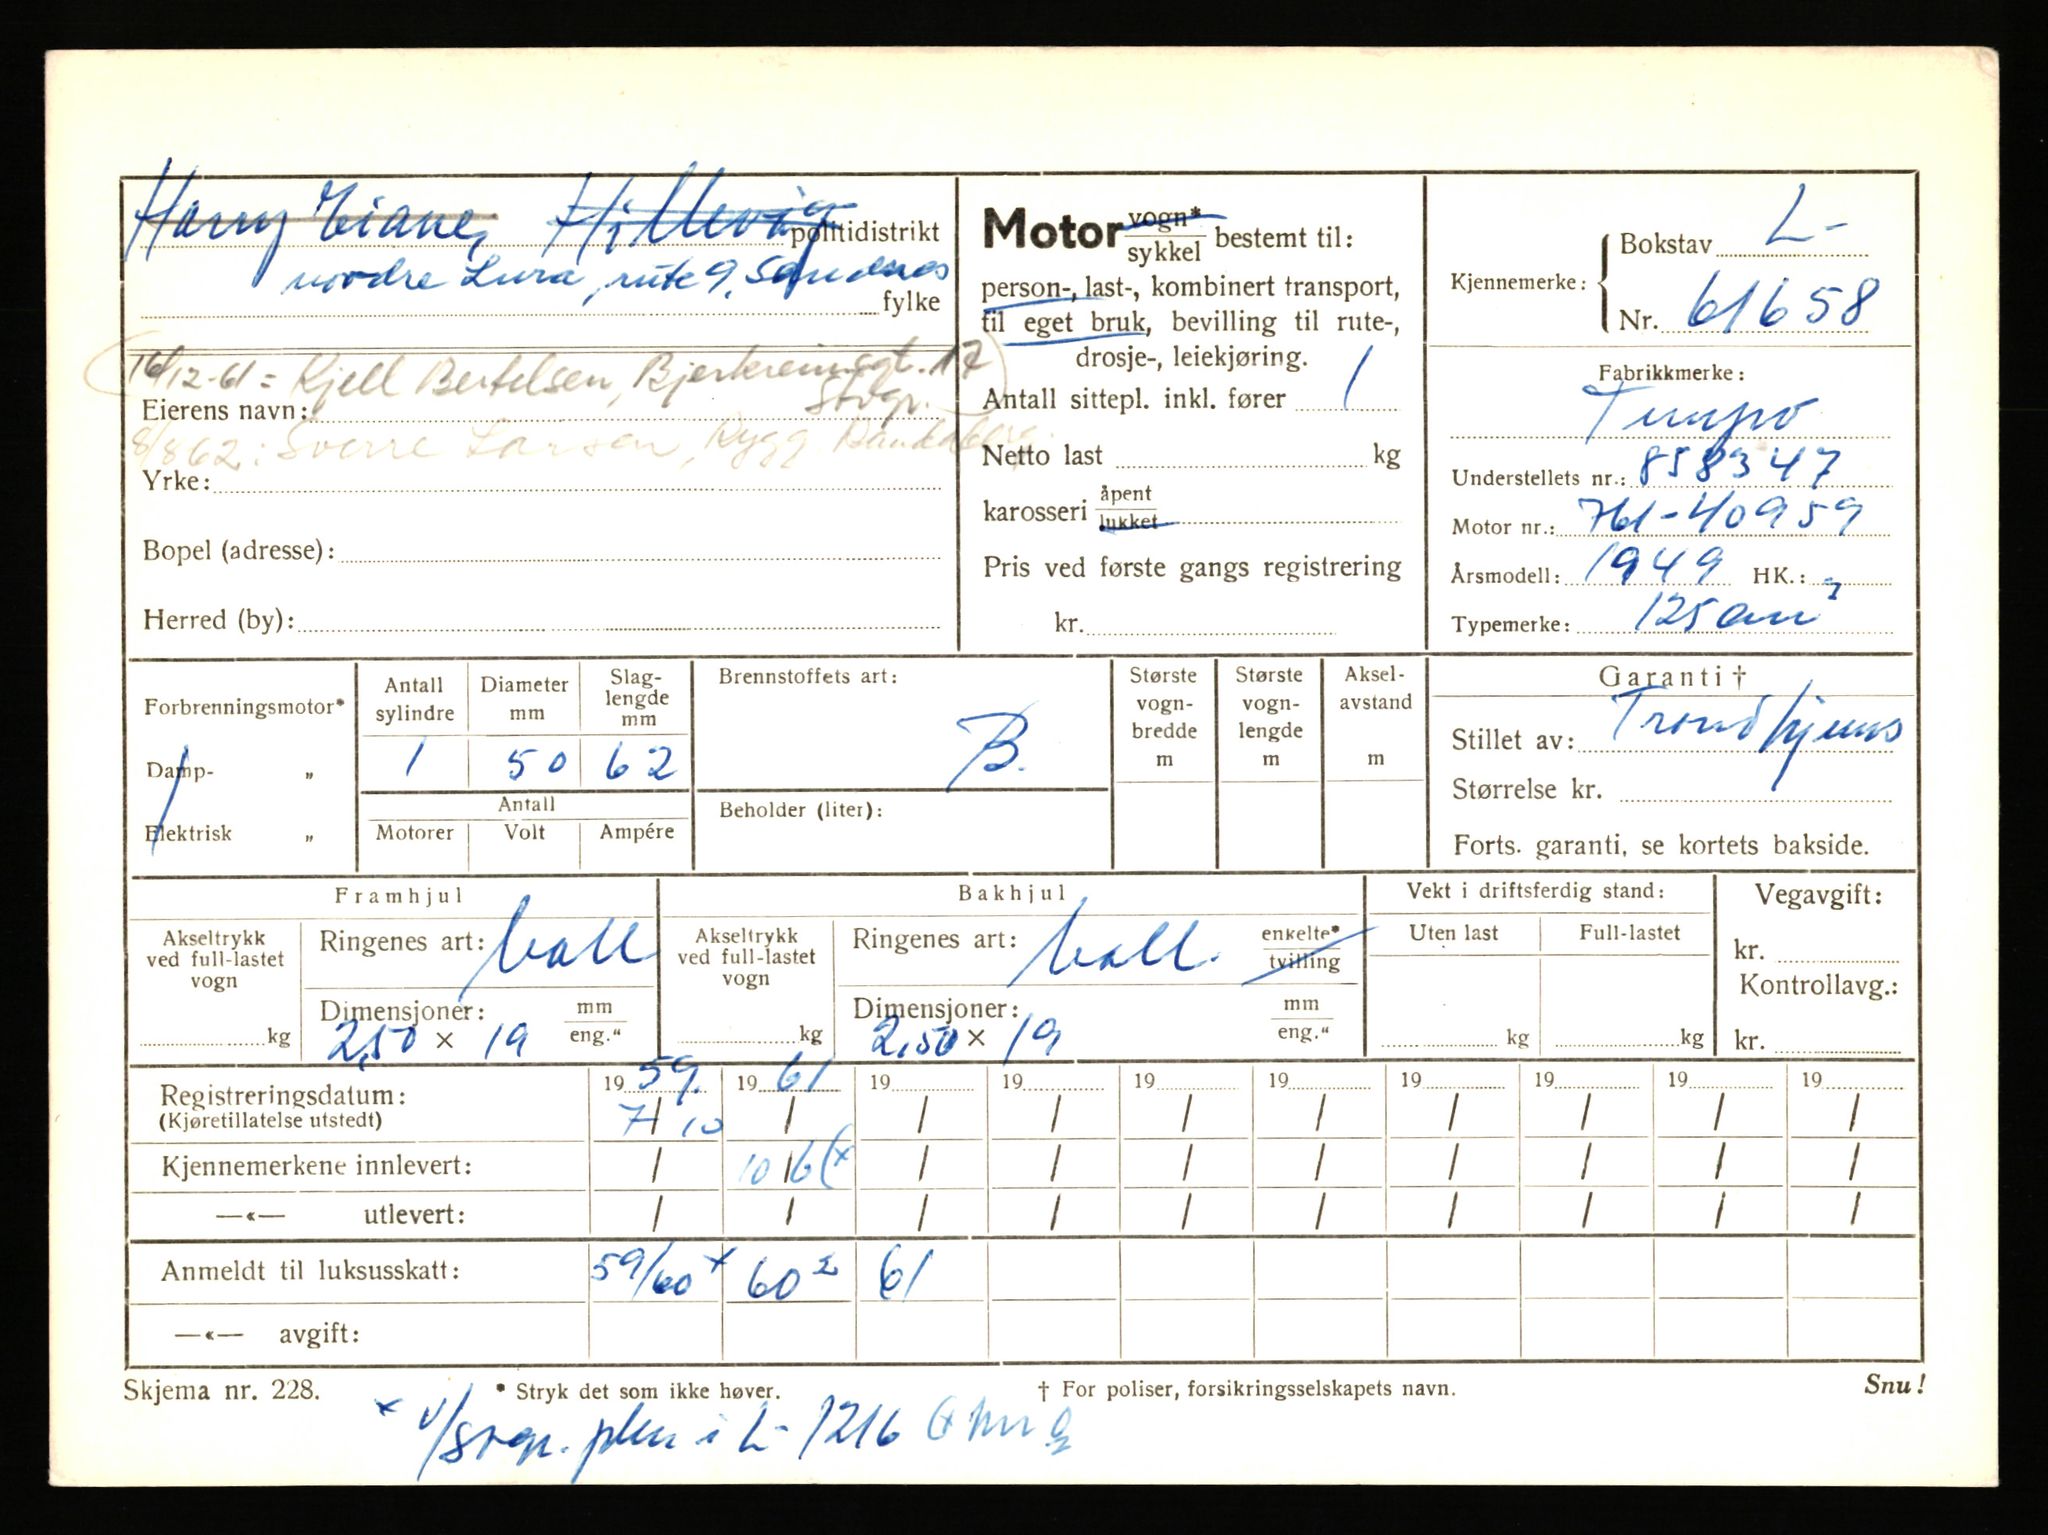 Harry Eiane, Hillevåg politidistrikt
nordre Lura, rute 9, Sandnes
fylke
16/12-61 = Kjell Bertelsen, Bjerkreimsgt. 17
Stvgr.
Eierens navn:
8/8 62: Sverre Larsen, Rygg, Randaberg.
Yrke:
Bopel (adresse):
Herred (by):
Motor vogn* / sykkel bestemt til:
person-, last-, kombinert transport,
til eget bruk, bevilling til rute-,
drosje-, leiekjøring.
Antall sittepl. inkl. fører 1
Netto last kg
karosseri åpent / lukket
Pris ved første gangs registrering
kr.
Kjennemerke: Bokstav L-
Nr. 61658
Fabrikkmerke:
Tempo
Understellets nr.: 858347
Motor nr.: 761-40959
Årsmodell: 1949 HK.:
Typemerke: 125 cm³
Forbrenningsmotor*
Damp- „
Elektrisk „
Antall sylindre Diameter mm Slaglengde mm
1 50 62
Antall
Motorer Volt Ampére
Brennstoffets art:
B.
Beholder (liter):
Største vogn-bredde m
Største vogn-lengde m
Aksel-avstand m
Garanti †
Stillet av: Trondhjems
Størrelse kr.
Forts. garanti, se kortets bakside.
Framhjul
Akseltrykk ved full-lastet vogn
kg
Ringenes art: ball
Dimensjoner: mm / eng.“
2,50 × 19
Bakhjul
Akseltrykk ved full-lastet vogn
kg
Ringenes art: ball. enkelte* / tvilling
Dimensjoner: mm / eng.“
2,50 × 19
Vekt i driftsferdig stand:
Uten last Full-lastet
kg kg
Vegavgift:
kr.
Kontrollavg.:
kr.
19 59. 19 61 19 19 19 19 19 19 19 19
Registreringsdatum:
(Kjøretillatelse utstedt)
7/10 / / / / / / / / /
Kjennemerkene innlevert: / 10/6 (x / / / / / / / /
—«— utlevert: / / / / / / / / / /
Anmeldt til luksusskatt: 59/60 x 60 2 61
—«— avgift:
Skjema nr. 228. * Stryk det som ikke høver. † For poliser, forsikringsselskapets navn. Snu!
x v/Svgr. i L-1216